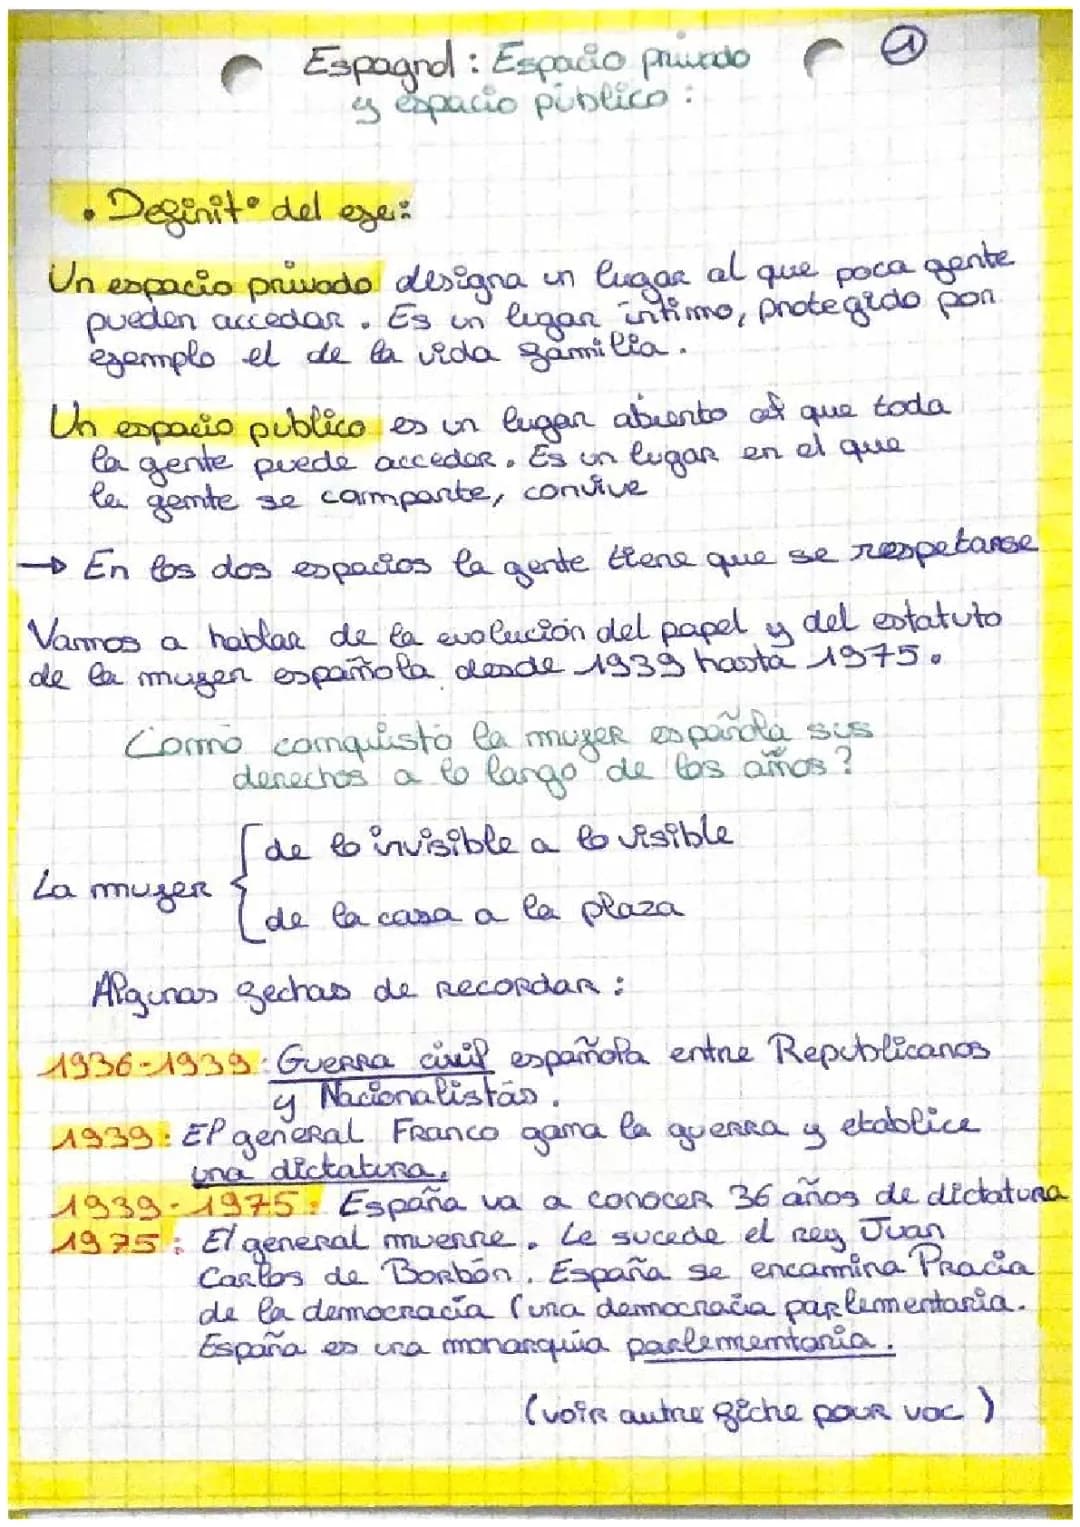 Espagnol : Espacio privado
1
y espacio público :
• Definit° del eje :
Un espacio privado designa un lugar al que poca gente
pueden accedar. Es un lugar íntimo, protegido por
ejemplo el de la vida familia.
Un espacio publico es un lugar abierto al que toda
la gente puede acceder. Es un lugar en el que
la gente se comparte, convive
→ En los dos espacios la gente tiene que se respetarse
Vamos a hablar de la evolución del papel y del estatuto
de la mujer española desde 1939 hasta 1975.
Como conquistó la mujer española sus
derechos a lo largo de los años ?
de lo invisible a lo visible
La mujer {
de la casa a la plaza
Algunas fechas de recordar :
1936-1939 : Guerra civil española entre Republicanos
y Nacionalistas.
1939 : El general Franco gana la guerra y etablice
una dictatura.
1939-1975 : España va a conocer 36 años de dictatura
1975 : El general muerre. Le sucede el rey Juan
Carlos de Borbón. España se encamina Pracia
de la democracía (una democracia parlementaria.
España es una monarquía parlementaria.
(voir autre fiche pour voc )